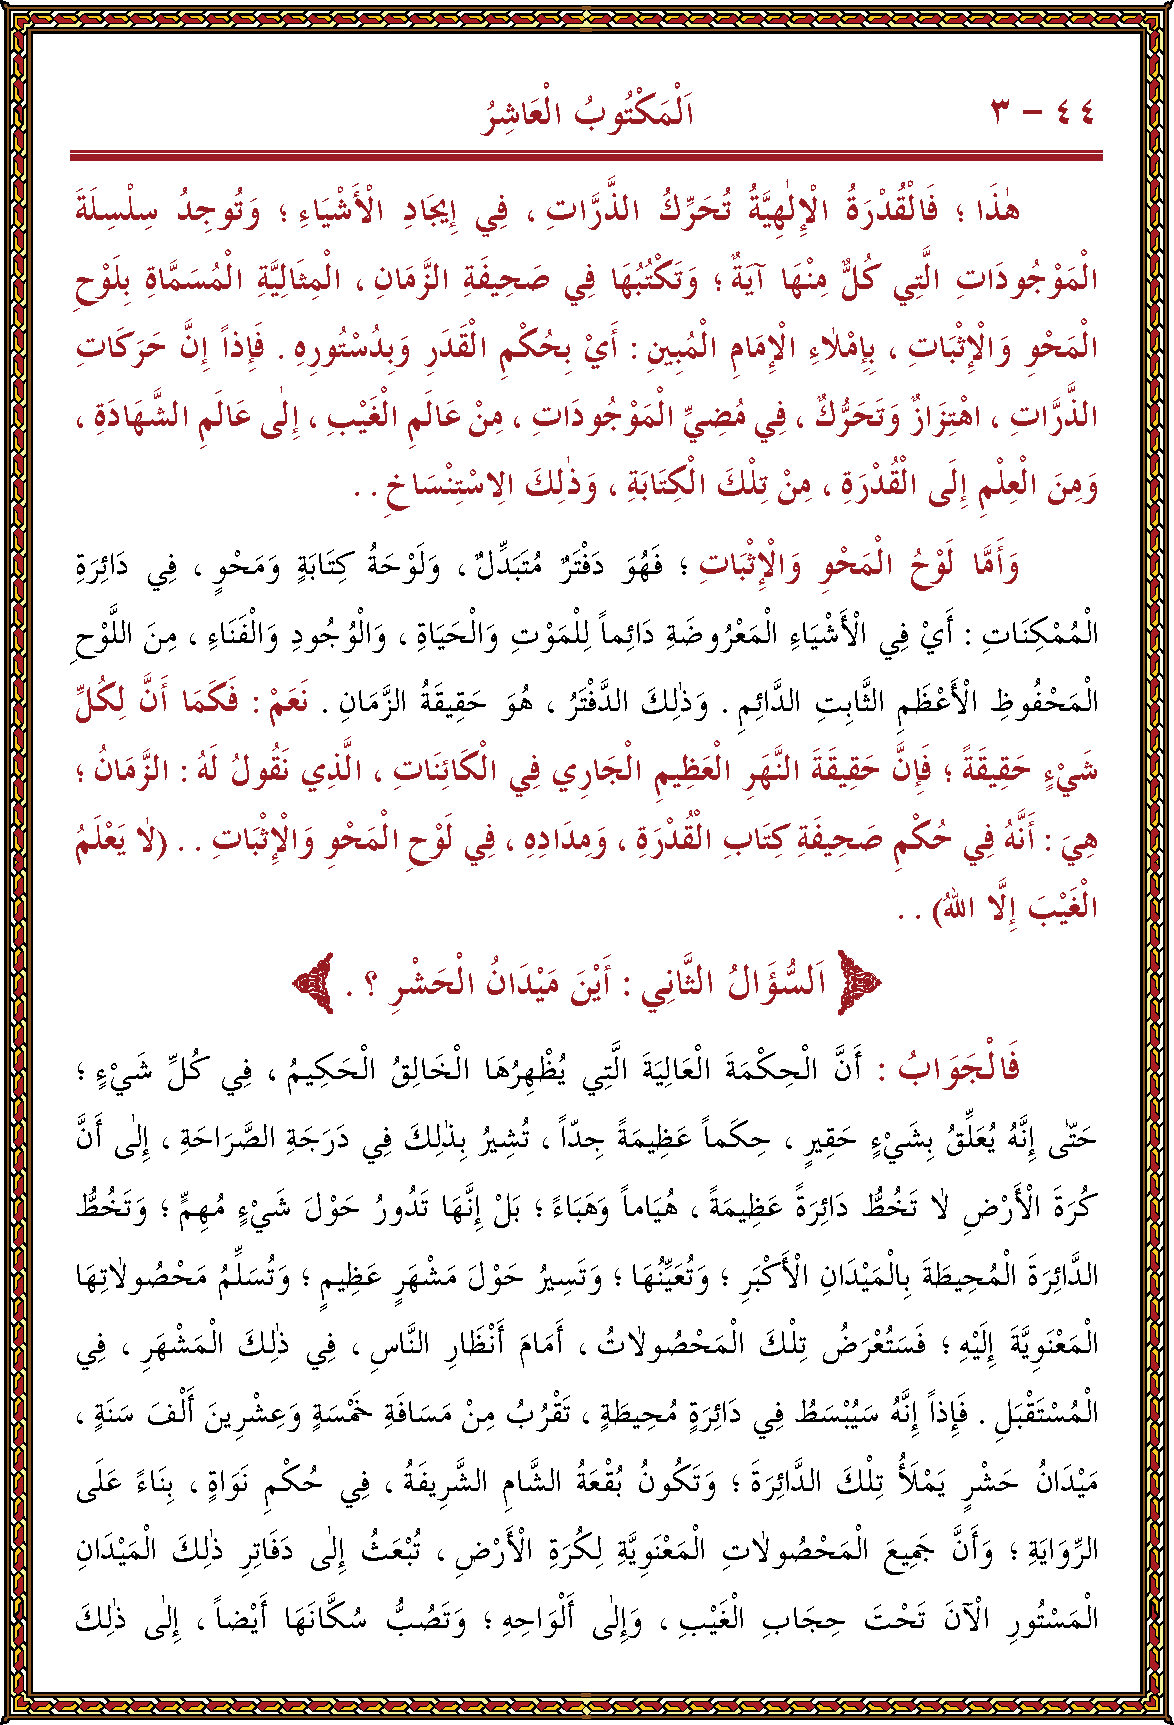 ٤٤ – ٣ اَلْمَكْتُوبُ الْعَاشِرُ
هٰذَا ؛ فَالْقُدْرَةُ الْإِلٰهِيَّةُ تُحَرِّكُ الذَّرَّاتِ ، فِي إِيجَادِ الْأَشْيَاءِ ؛ وَتُوجِدُ سِلْسِلَةَ
الْمَوْجُودَاتِ الَّتِي كُلٌّ مِنْهَا آيَةٌ ؛ وَتَكْتُبُهَا فِي صَحِيفَةِ الزَّمَانِ ، الْمِثَالِيَّةِ الْمُسَمَّاةِ بِلَوْحِ
الْمَحْوِ وَالْإِثْبَاتِ ، بِإِمْلَاءِ الْإِمَامِ الْمُبِينِ : أَيْ بِحُكْمِ الْقَدَرِ وَبِدُسْتُورِهِ . فَإِذاً إِنَّ حَرَكَاتِ
الذَّرَّاتِ ، اهْتِزَازٌ وَتَحَرُّكٌ ، فِي مُضِيِّ الْمَوْجُودَاتِ ، مِنْ عَالَمِ الْغَيْبِ ، إِلٰى عَالَمِ الشَّهَادَةِ ،
وَمِنَ الْعِلْمِ إِلَى الْقُدْرَةِ ، مِنْ تِلْكَ الْكِتَابَةِ ، وَذٰلِكَ الِاسْتِنْسَاخِ . .
وَأَمَّا لَوْحُ الْمَحْوِ وَالْإِثْبَاتِ ؛ فَهُوَ دَفْتَرٌ مُتَبَدِّلٌ ، وَلَوْحَةُ كِتَابَةٍ وَمَحْوٍ ، فِي دَائِرَةِ
الْمُمْكِنَاتِ : أَيْ فِي الْأَشْيَاءِ الْمَعْرُوضَةِ دَائِماً لِلْمَوْتِ وَالْحَيَاةِ ، وَالْوُجُودِ وَالْفَنَاءِ ، مِنَ اللَّوْحِ
الْمَحْفُوظِ الْأَعْظَمِ الثَّابِتِ الدَّائِمِ . وَذٰلِكَ الدَّفْتَرُ ، هُوَ حَقِيقَةُ الزَّمَانِ . نَعَمْ : فَكَمَا أَنَّ لِكُلِّ
شَيْءٍ حَقِيقَةً ؛ فَإِنَّ حَقِيقَةَ النَّهَرِ الْعَظِيمِ الْجَارِي فِي الْكَائِنَاتِ ، الَّذِي نَقُولُ لَهُ : الزَّمَانُ ؛
هِيَ : أَنَّهُ فِي حُكْمِ صَحِيفَةِ كِتَابِ الْقُدْرَةِ ، وَمِدَادِهِ ، فِي لَوْحِ الْمَحْوِ وَالْإِثْبَاتِ . . (لَا يَعْلَمُ
الْغَيْبَ إِلَّا اللهُ) . .
اَلسُّؤَالُ الثَّانِي : أَيْنَ مَيْدَانُ الْحَشْرِ ؟ .
فَالْجَوَابُ : أَنَّ الْحِكْمَةَ الْعَالِيَةَ الَّتِي يُظْهِرُهَا الْخَالِقُ الْحَكِيمُ ، فِي كُلِّ شَيْءٍ ؛
حَتّٰى إِنَّهُ يُعَلِّقُ بِشَيْءٍ حَقِيرٍ ، حِكَماً عَظِيمَةً جِدّاً ، تُشِيرُ بِذٰلِكَ فِي دَرَجَةِ الصَّرَاحَةِ ، إِلٰى أَنَّ
كُرَةَ الْأَرْضِ لَا تَخُطُّ دَائِرَةً عَظِيمَةً ، هُيَاماً وَهَبَاءً ؛ بَلْ إِنَّهَا تَدُورُ حَوْلَ شَيْءٍ مُهِمٍّ ؛ وَتَخُطُّ
الدَّائِرَةَ الْمُحِيطَةَ بِالْمَيْدَانِ الْأَكْبَرِ ؛ وَتُعَيِّنُهَا ؛ وَتَسِيرُ حَوْلَ مَشْهَرٍ عَظِيمٍ ؛ وَتُسَلِّمُ مَحْصُولَاتِهَا
الْمَعْنَوِيَّةَ إِلَيْهِ ؛ فَسَتُعْرَضُ تِلْكَ الْمَحْصُولَاتُ ، أَمَامَ أَنْظَارِ النَّاسِ ، فِي ذٰلِكَ الْمَشْهَرِ ، فِي
الْمُسْتَقْبَلِ . فَإِذاً إِنَّهُ سَيُبْسَطُ فِي دَائِرَةٍ مُحِيطَةٍ ، تَقْرُبُ مِنْ مَسَافَةِ خَمْسَةٍ وَعِشْرِينَ أَلْفَ سَنَةٍ ،
مَيْدَانُ حَشْرٍ يَمْلَأُ تِلْكَ الدَّائِرَةَ ؛ وَتَكُونُ بُقْعَةُ الشَّامِ الشَّرِيفَةُ ، فِي حُكْمِ نَوَاةٍ ، بِنَاءً عَلَى
الرِّوَايَةِ ؛ وَأَنَّ جَمِيعَ الْمَحْصُولَاتِ الْمَعْنَوِيَّةِ لِكُرَةِ الْأَرْضِ ، تُبْعَثُ إِلٰى دَفَاتِرِ ذٰلِكَ الْمَيْدَانِ
الْمَسْتُورِ الْآنَ تَحْتَ حِجَابِ الْغَيْبِ ، وَإِلٰى أَلْوَاحِهِ ؛ وَتَصُبُّ سُكَّانَهَا أَيْضاً ، إِلٰى ذٰلِكَ